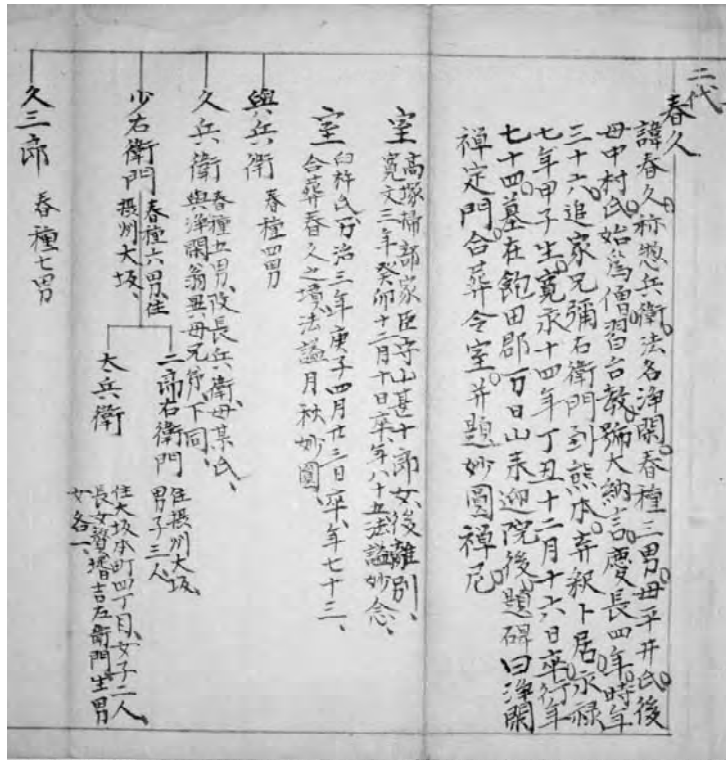 二代
春久
諱春久称惣兵衛法名浄閑春種三男母平井氏後
母中村氏始為僧習台教号大納言慶長四年時年
三十六追家兄彌右衛門到熊本弃釈卜居永禄
七年甲子生寛永十四年丁丑十二月十六日卒行年
七十四墓在飽田郡万日山来迎院後題碑曰浄閑
禅定門合葬令室并題妙圓禅尼
室 高塚掃部家臣守山甚十郎女後離別
寛文三年癸卯十二月十日卒年八十五法謚妙念
室 臼杵氏万治三年庚子四月廿三日卒年七十三
合葬春久之墳法謚月秋妙圓
與兵衛 春種四男
久兵衛 春種五男改長兵衛母某氏
與浄閑翁異母兄弟下同
少右衛門 春種六男住
摂州大坂
二郎右衛門 住摂州大坂
男子三人
太兵衛 住大坂本町四丁目女子二人
長女贅壻吉左衛門生男
女各一
久三郎 春種七男